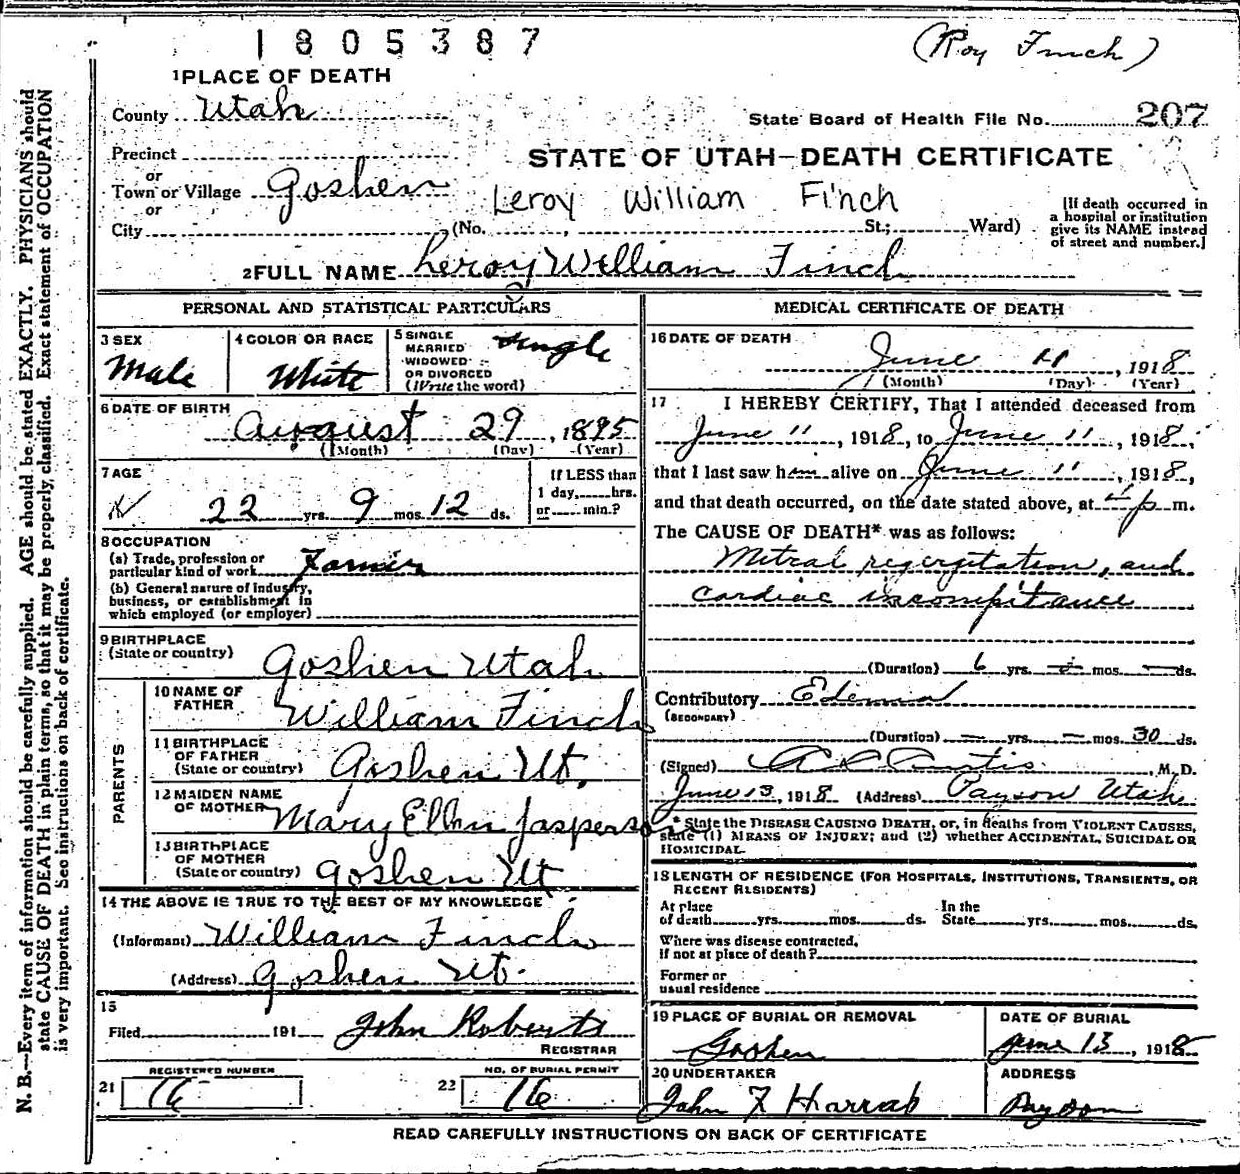 1805387
(Roy Finch)
1 PLACE OF DEATH
County Utah
State Board of Health File No. 207
Precinct
or
Town or Village Goshen
or
City
STATE OF UTAH—DEATH CERTIFICATE
Leroy William Finch
(No. , St.; Ward)
[If death occurred in
a hospital or institution
give its NAME instead
of street and number.]
2 FULL NAME Leroy William Finch
PERSONAL AND STATISTICAL PARTICULARS
3 SEX
Male
4 COLOR OR RACE
White
5 SINGLE
MARRIED
WIDOWED
OR DIVORCED
(Write the word)
single
6 DATE OF BIRTH
August 29, 1895
(Month) (Day) (Year)
7 AGE
22 yrs. 9 mos. 12 ds.
If LESS than
1 day, hrs.
or min.?
8 OCCUPATION
(a) Trade, profession or
particular kind of work Farmer
(b) General nature of industry,
business, or establishment in
which employed (or employer)
9 BIRTHPLACE
(State or country)
Goshen Utah
PARENTS
10 NAME OF
FATHER
William Finch
11 BIRTHPLACE
OF FATHER
(State or country)
Goshen Ut.
12 MAIDEN NAME
OF MOTHER
Mary Ellen Jasperson
13 BIRTHPLACE
OF MOTHER
(State or country)
Goshen Ut
14 THE ABOVE IS TRUE TO THE BEST OF MY KNOWLEDGE
(Informant) William Finch
(Address) Goshen Ut.
15
Filed 191 John Roberts
REGISTRAR
REGISTERED NUMBER
21 16
NO. OF BURIAL PERMIT
22 16
MEDICAL CERTIFICATE OF DEATH
16 DATE OF DEATH
June 11, 1918
(Month) (Day) (Year)
17 I HEREBY CERTIFY, That I attended deceased from
June 11, 1918, to June 11, 1918,
that I last saw him alive on June 11, 1918,
and that death occurred, on the date stated above, at p m.
The CAUSE OF DEATH* was as follows:
Mitral regergitation, and
cardiac incompitance
(Duration) 6 yrs. mos. ds.
Contributory Edema
(SECONDARY)
(Duration) — yrs. — mos. 30 ds.
(Signed) A L Curtis, M. D.
June 13, 1918 (Address) Payson Utah
* State the DISEASE CAUSING DEATH, or, in deaths from VIOLENT CAUSES,
state (1) MEANS OF INJURY; and (2) whether ACCIDENTAL, SUICIDAL OR
HOMICIDAL.
18 LENGTH OF RESIDENCE (FOR HOSPITALS, INSTITUTIONS, TRANSIENTS, OR
RECENT RESIDENTS)
At place
of death yrs. mos. ds.
In the
State yrs. mos. ds.
Where was disease contracted,
if not at place of death?
Former or
usual residence
19 PLACE OF BURIAL OR REMOVAL
Goshen
DATE OF BURIAL
June 13, 1918
20 UNDERTAKER
John F Harrab
ADDRESS
Payson
READ CAREFULLY INSTRUCTIONS ON BACK OF CERTIFICATE
N. B.—Every item of information should be carefully supplied. AGE should be stated EXACTLY. PHYSICIANS should
state CAUSE OF DEATH in plain terms, so that it may be properly classified. Exact statement of OCCUPATION
is very important. See instructions on back of certificate.